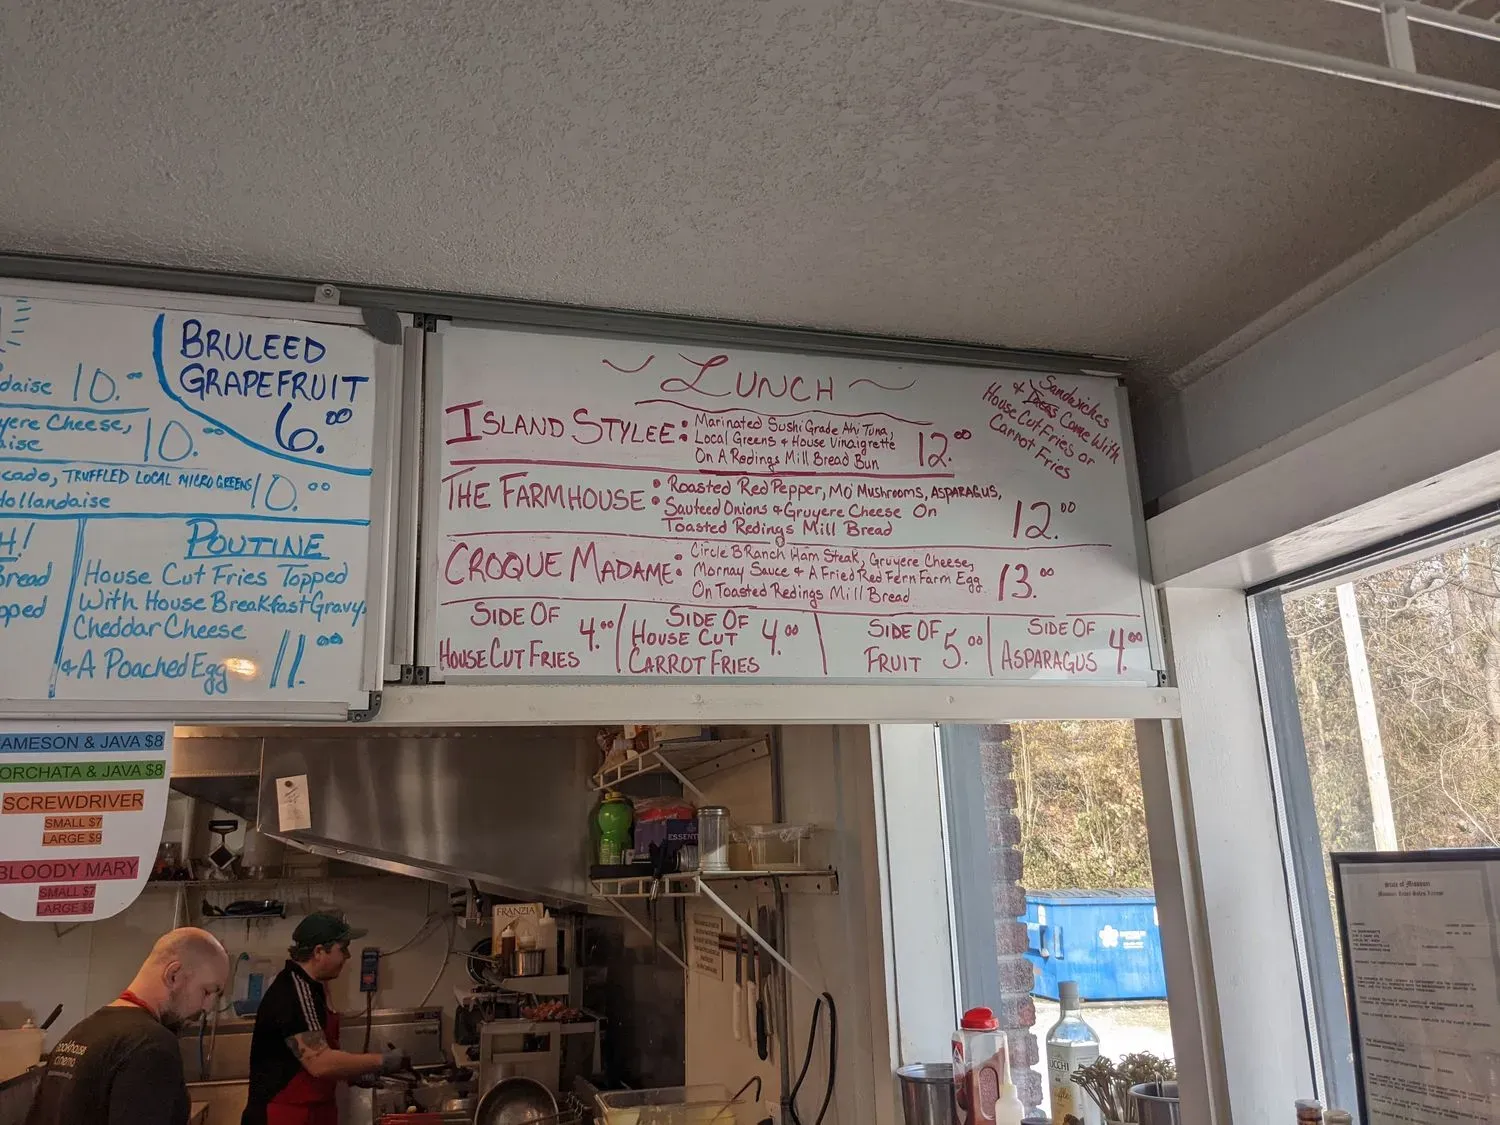 daise 10.00
yere Cheese,
aise 10.00
cado, TRUFFLED LOCAL MICRO GREENS 10.00
Hollandaise
BRULEED
GRAPEFRUIT
6.00
H!
Bread
pped
POUTINE
House Cut Fries Topped
With House Breakfast Gravy,
Cheddar Cheese
& A Poached Egg 11.00
LUNCH
& Sandwiches
Come With
House Cut Fries or
Carrot Fries
ISLAND STYLEE: Marinated Sushi Grade Ahi Tuna,
Local Greens & House Vinaigrette
On A Redings Mill Bread Bun 12.00
THE FARMHOUSE: Roasted Red Pepper, Mo' Mushrooms, ASPARAGUS,
Sauteed Onions & Gruyere Cheese On
Toasted Redings Mill Bread 12.00
CROQUE MADAME: Circle B Ranch Ham Steak, Gruyere Cheese,
Mornay Sauce & A Fried Red Fern Farm Egg
On Toasted Redings Mill Bread 13.00
SIDE OF
HOUSE CUT FRIES 4.00
SIDE OF
HOUSE CUT
CARROT FRIES 4.00
SIDE OF
FRUIT 5.00
SIDE OF
ASPARAGUS 4.00
AMESON & JAVA $8
ORCHATA & JAVA $8
SCREWDRIVER
SMALL $7
LARGE $9
BLOODY MARY
SMALL $7
LARGE $9
FRANZIA
ESSENT
State of Missouri